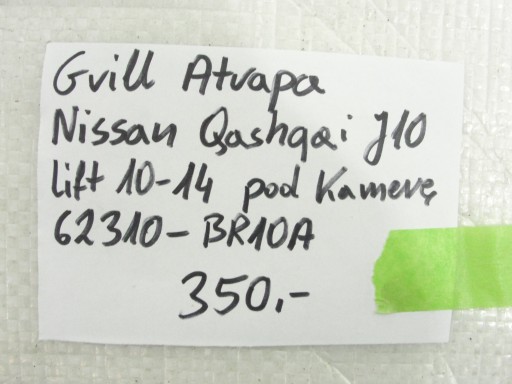 Grill Atrapa
Nissan Qashqai J10
Lift 10-14 pod Kamerę
62310-BR10A
350,-